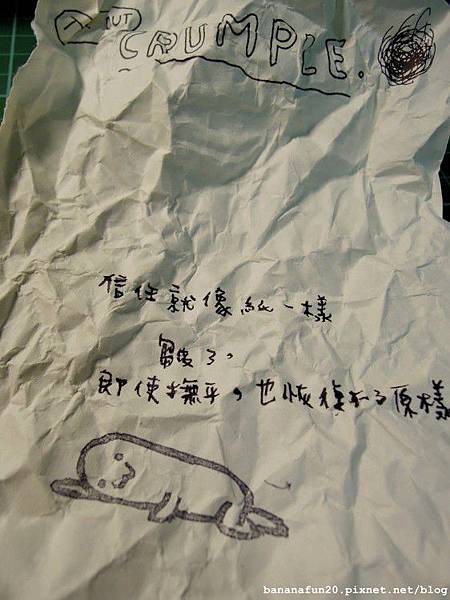 CRUMPLE.
信任就像紙一樣
皺了。
即使撫平，也恢復不了原樣
bananafun20.pixnet.net/blog